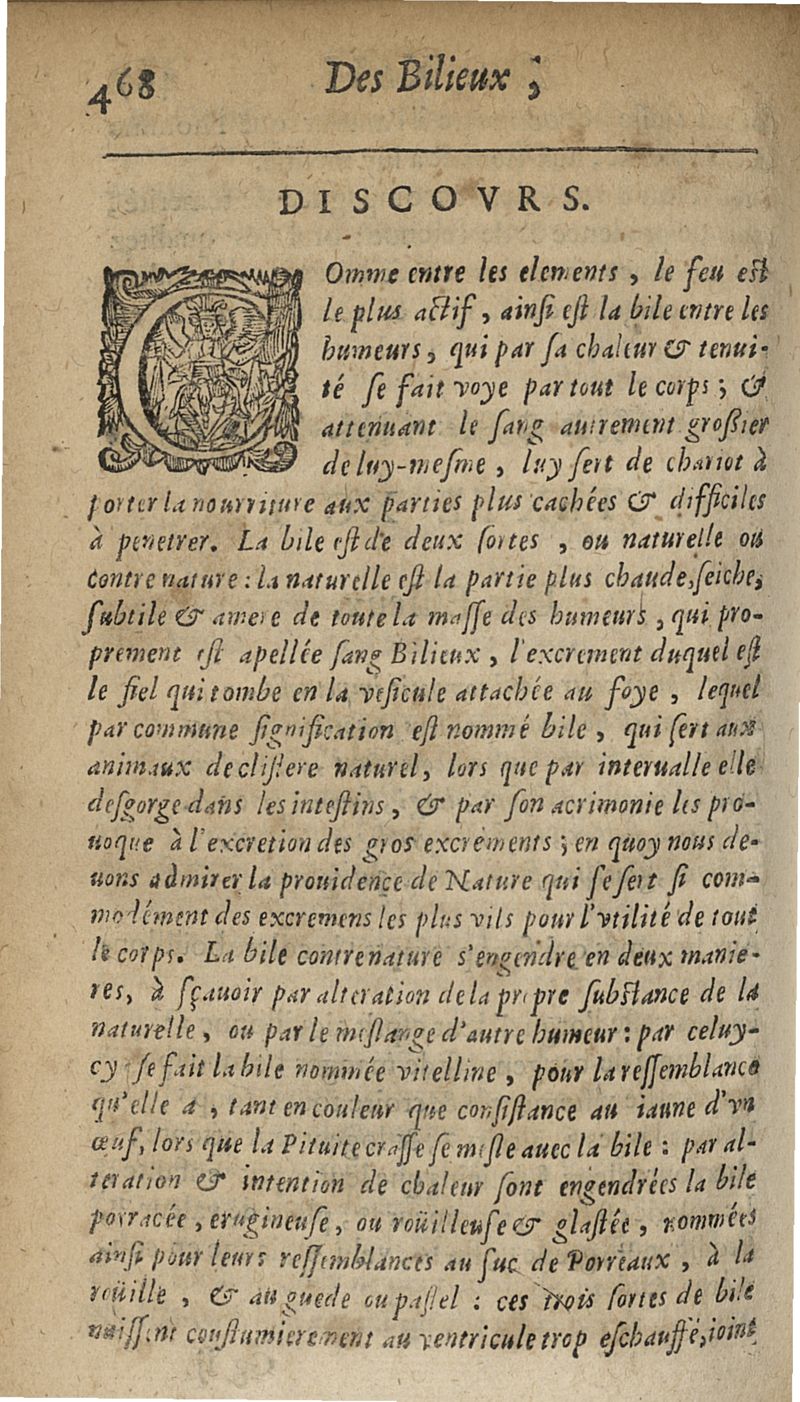 468 Des Bilieux ;
DISCOVRS.
COmme entre les elements, le feu est
le plus actif, ainsi est la bile entre les
humeurs, qui par sa chaleur & tenui-
té se fait voye par tout le corps ; &
attenuant le sang autrement grossier
de luy-mesme, luy sert de chariot à
porter la nourriture aux parties plus cachées & difficiles
à penetrer. La bile est de deux sortes, ou naturelle ou
contre nature : la naturelle est la partie plus chaude, seiche,
subtile & amere de toute la masse des humeurs, qui pro-
prement est apellée sang Bilieux, l'excrement duquel est
le fiel qui tombe en la vesicule attachée au foye, lequel
par commune signification est nommé bile, qui sert aux
animaux de clistere naturel, lors que par interualle elle
desgorge dans les intestins, & par son acrimonie les pro-
uoque à l'excretion des gros excréments ; en quoy nous de-
uons admirer la prouidence de Nature qui se sert si com-
modément des excremens les plus vils pour l'vtilité de tout
le corps. La bile contre nature s'engendre en deux manie-
res, à sçauoir par alteration de la propre substance de la
naturelle, ou par le meslange d'autre humeur : par celuy-
cy se fait la bile nommée vitelline, pour la ressemblance
qu'elle a, tant en couleur que consistance au iaune d'vn
œuf, lors que la Pituite crasse se mesle auec la bile : par al-
teration & intention de chaleur sont engendrées la bile
porracée, erugineuse, ou roüilleuse & glastée, nommées
ainsi pour leurs ressemblances au suc de Porreaux, à la
roüille, & au guede ou pastel : ces trois sortes de bile
naissent coustumierement au ventricule trop eschauffé, joint